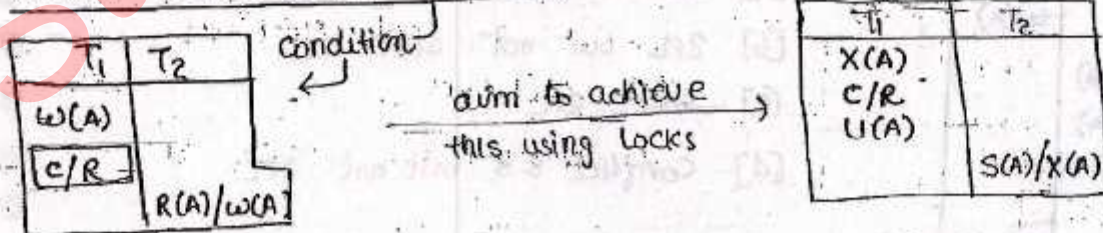 T1 T2
W(A)
C/R
R(A)/W(A)
Condition
aim to achieve
this using locks
T1 T2
X(A)
C/R
U(A)
S(A)/X(A)